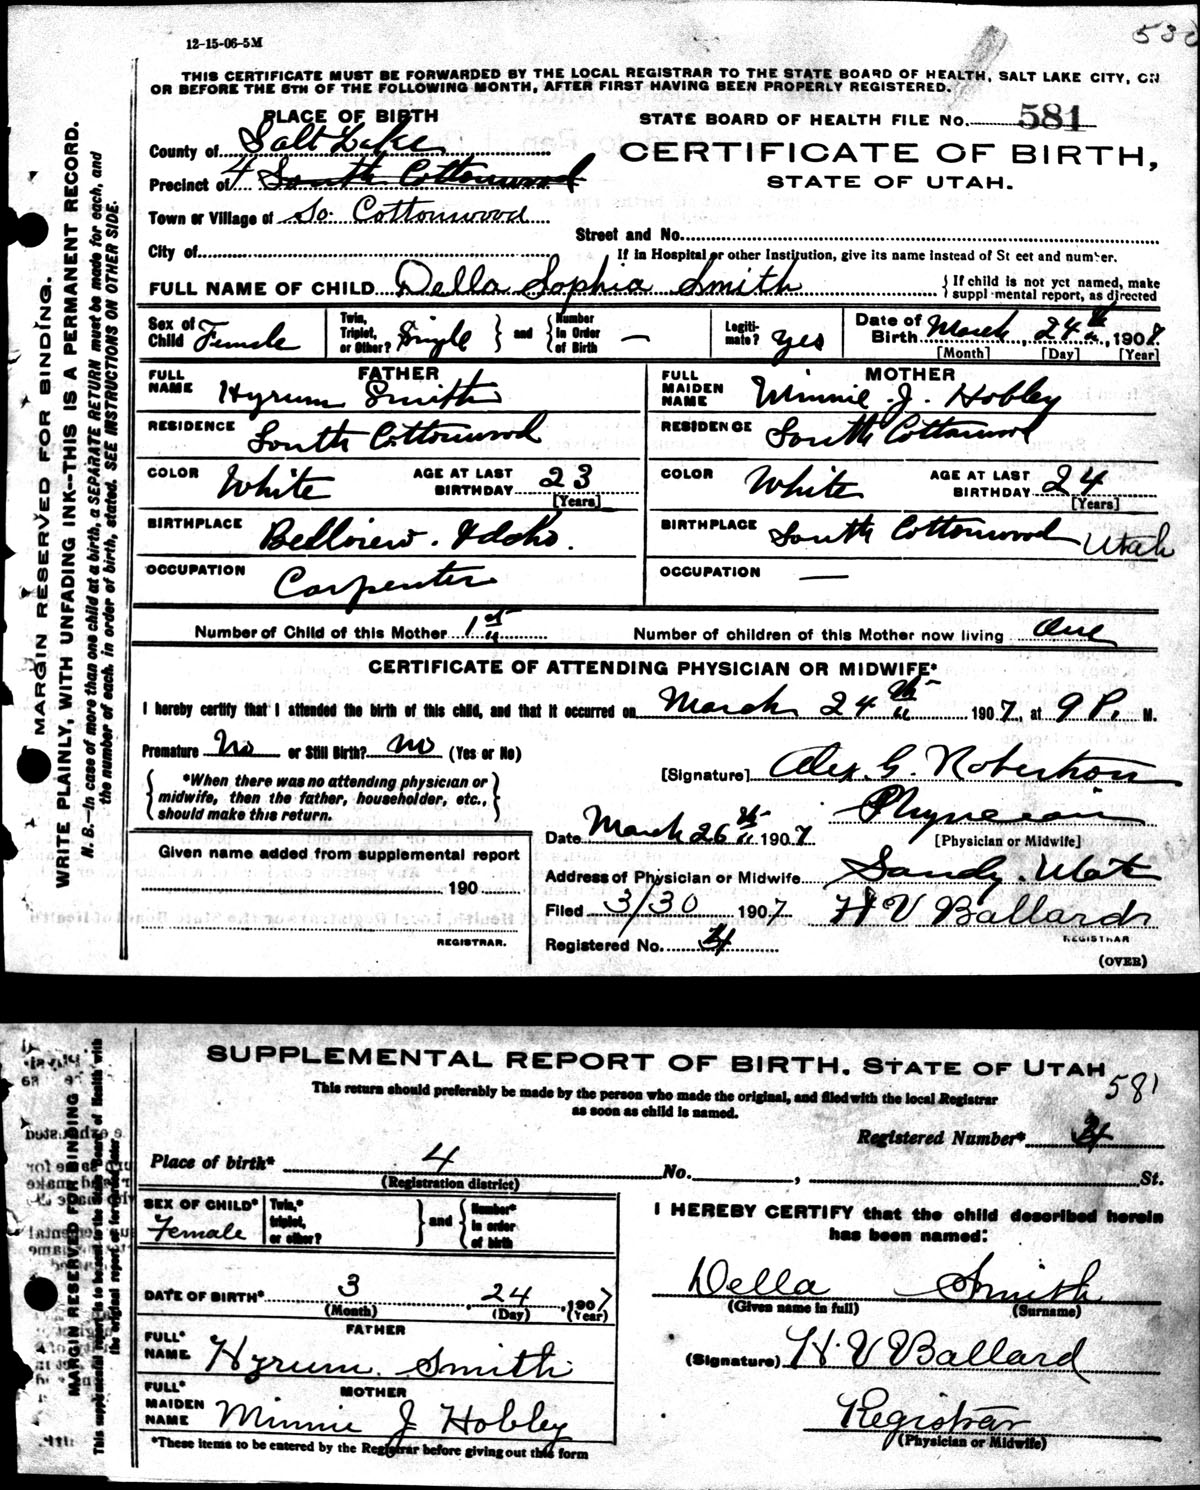 12-15-06-5M
530
THIS CERTIFICATE MUST BE FORWARDED BY THE LOCAL REGISTRAR TO THE STATE BOARD OF HEALTH, SALT LAKE CITY, ON
OR BEFORE THE 5TH OF THE FOLLOWING MONTH, AFTER FIRST HAVING BEEN PROPERLY REGISTERED.
PLACE OF BIRTH
STATE BOARD OF HEALTH FILE No. 581
County of Salt Lake
CERTIFICATE OF BIRTH,
STATE OF UTAH.
Precinct of 4 South Cottonwood
Town or Village of So. Cottonwood
Street and No.
City of
If in Hospital or other Institution, give its name instead of St eet and number.
FULL NAME OF CHILD Della Sophia Smith { If child is not yet named, make
suppl mental report, as directed
Sex of Child Female
Twin, Triplet, or Other? Single } and { Number in Order of Birth —
Legitimate? yes
Date of Birth March, 24th, 1907
[Month] [Day] [Year]
FATHER
FULL NAME Hyrum Smith
RESIDENCE South Cottonwood
COLOR White AGE AT LAST BIRTHDAY 23
[Years]
BIRTHPLACE Bellview. Idaho.
OCCUPATION Carpenter
MOTHER
FULL MAIDEN NAME Winnie. J. Hobley
RESIDENCE South Cottonwood
COLOR White AGE AT LAST BIRTHDAY 24
[Years]
BIRTHPLACE South Cottonwood Utah
OCCUPATION —
Number of Child of this Mother 1st Number of children of this Mother now living One
CERTIFICATE OF ATTENDING PHYSICIAN OR MIDWIFE*
I hereby certify that I attended the birth of this child, and that it occurred on March 24th 1907, at 9 P. M.
Premature No or Still Birth? no (Yes or No)
*When there was no attending physician or
midwife, then the father, householder, etc.,
should make this return.
[Signature] Alex. G. Robertson
Physician
[Physician or Midwife]
Date March 26th 1907
Given name added from supplemental report
190
REGISTRAR.
Address of Physician or Midwife Sandy. Utah
Filed 3/30 1907 H V Ballard
REGISTRAR
Registered No. 4
(OVER)
MARGIN RESERVED FOR BINDING.
WRITE PLAINLY, WITH UNFADING INK—THIS IS A PERMANENT RECORD.
N. B.—In case of more than one child at a birth, a SEPARATE RETURN must be made for each, and
the number of each, in order of birth, stated. SEE INSTRUCTIONS ON OTHER SIDE.
SUPPLEMENTAL REPORT OF BIRTH. STATE OF UTAH
581
This return should preferably be made by the person who made the original, and filed with the local Registrar
as soon as child is named.
Registered Number* 4
Place of birth* 4 No. , St.
(Registration district)
SEX OF CHILD* Female
Twin,* triplet, or other? } and { Number* in order of birth
DATE OF BIRTH* 3, 24, 1907
(Month) (Day) (Year)
FATHER
FULL* NAME Hyrum. Smith
MOTHER
FULL* MAIDEN NAME Minnie J Hobley
*These items to be entered by the Registrar before giving out this form
I HEREBY CERTIFY that the child described herein
has been named:
Della Smith
(Given name in full) (Surname)
(Signature) H. V Ballard
Registrar
(Physician or Midwife)
MARGIN RESERVED FOR BINDING